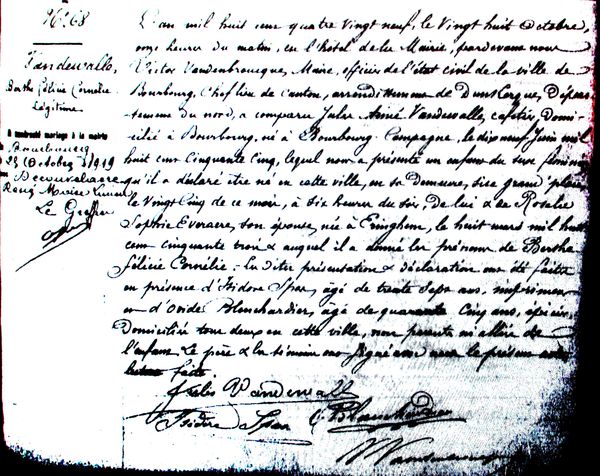 N° 68
Vandewalle,
Berthe Félicie Cornélie
Légitime
A contracté mariage à la mairie
Bourbourg
23 Octobre 1919
Decouvelaere
René Moïse
Le Greffier
L'an mil huit cent quatre vingt neuf, le vingt huit Octobre,
onze heures du matin, en l'hôtel de la Mairie, pardevant nous
Victor Vandenbroucque, Maire, officier de l'état civil de la ville de
Bourbourg, Chef lieu de Canton, arrondissement de Dunkerque, Dépar-
tement du nord, a comparu Jules Aimé Vandewalle, cafetier, Domi-
cilié à Bourbourg, né à Bourbourg-Campagne, le dix neuf Juin mil
huit cent Cinquante Cinq, lequel nous a présenté un enfant du sexe féminin
qu'il a déclaré être né en cette ville, en sa Demeure, sise grand' place
le Vingt Cinq de ce mois, à six heures du soir, de lui & de Rosalie
Sophie Everaere, son épouse, née à Eringhem, le huit mars mil huit
cent cinquante trois & auquel il a donné les prénoms de Berthe
Félicie Cornélie. Les dites présentation & déclaration ont été faites
en présence d'Isidore Spas, âgé de trente sept ans, imprimeur
& d'Ovide Blanchardier, âgé de quarante Cinq ans, épicier
Domiciliés tous deux en cette ville, non parents ni alliés de
l'enfant. Le père & les témoins ont signé avec nous le présent acte
lecture faite.
Jules Vandewalle
Isidore Spas Blanchardier